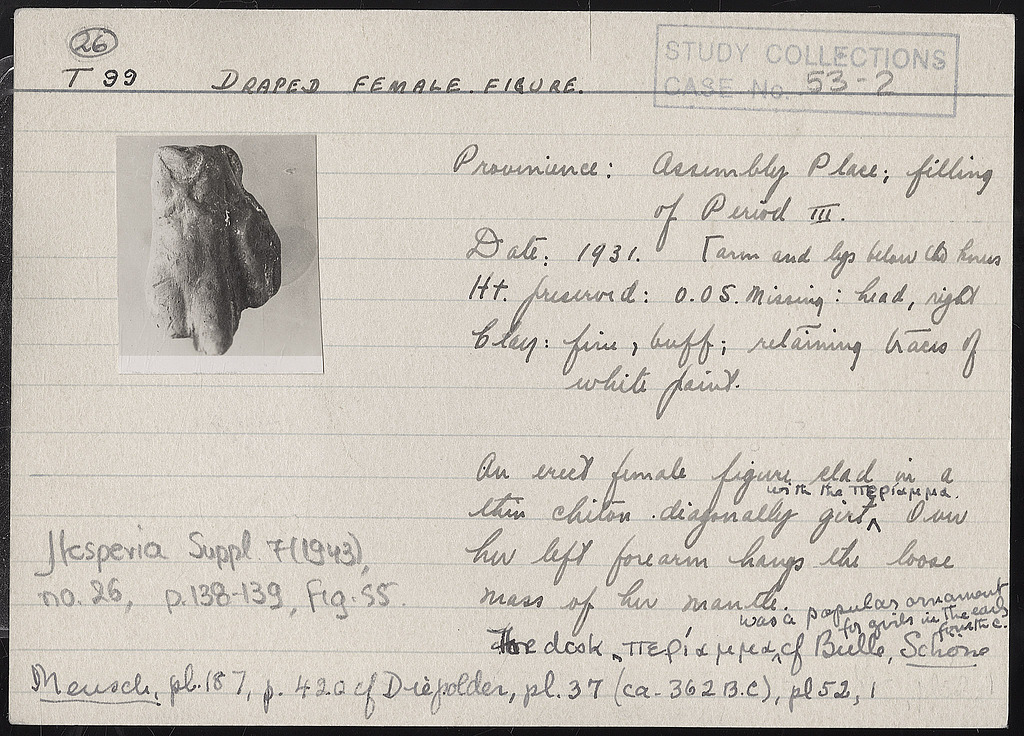 26
T 99 DRAPED FEMALE FIGURE.
STUDY COLLECTIONS
CASE No. 53-2
Provinience: Assembly Place; filling
of Period III.
Date: 1931. [arm and legs below the knees
Ht. preserved: 0.05. Missing: head, right
Clay: fine, buff; retaining traces of
white paint.
An erect female figure clad in a
with the περίαμμα.
thin chiton diagonally girt, Over
her left forearm hangs the loose
mass of her mantle.
was a popular ornament
for girls in the early
fourth c.
The desk, περίαμμα, cf Bulle, Schöne
Mensch, pl. 187, p. 420 cf Diepolder, pl. 37 (ca. 362 B.C), pl 52, 1
Hesperia Suppl. 7 (1943),
no. 26, p. 138-139, Fig. 55.